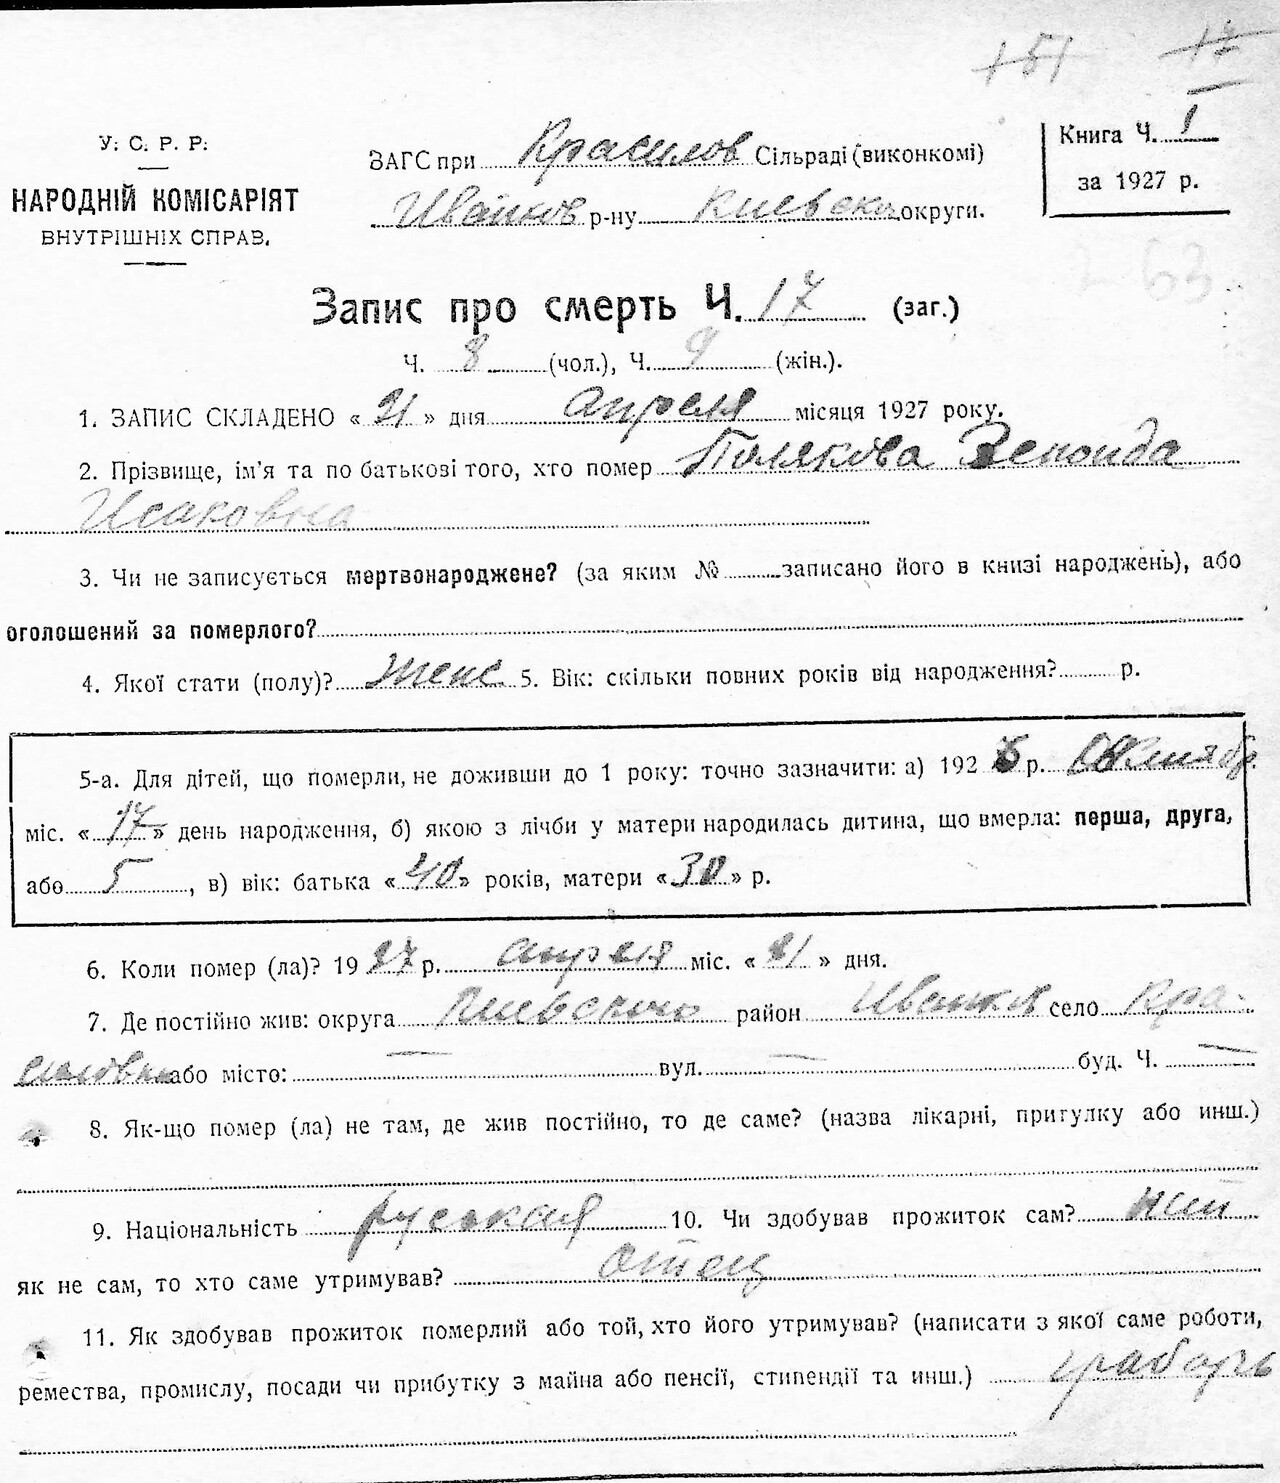 151 17
У. С. Р. Р.
НАРОДНІЙ КОМІСАРІЯТ
ВНУТРІШНІХ СПРАВ.
ЗАГС при Красилов Сільраді (виконкомі)
Иванков р-ну Киевско округи.
Книга Ч. I
за 1927 р.
263
Запис про смерть Ч. 17 (заг.)
Ч. 8 (чол.), Ч. 9 (жін.).
1. ЗАПИС СКЛАДЕНО « 21 » дня апреля місяця 1927 року.
2. Прізвище, ім'я та по батькові того, хто помер Полякова Зеноида
Исаковна
3. Чи не записується мертвонароджене? (за яким № записано його в книзі народжень), або
оголошений за померлого?
4. Якої стати (полу)? женс 5. Вік: скільки повних років від народження? р.
5-а. Для дітей, що померли, не доживши до 1 року: точно зазначити: а) 1926 р. Октябр
міс. « 17 » день народження, б) якою з лічби у матери народилась дитина, що вмерла: перша, друга,
або 5, в) вік: батька « 40 » років, матери « 30 » р.
6. Коли помер (ла)? 1927 р. апреля міс. « 21 » дня.
7. Де постійно жив: округа Киевского район Иванков село Кра-
або місто: — вул. — буд. Ч. —
8. Як-що помер (ла) не там, де жив постійно, то де саме? (назва лікарні, притулку або инш.)
9. Національність руськая 10. Чи здобував прожиток сам?
як не сам, то хто саме утримував? отец
11. Як здобував прожиток померлий або той, хто його утримував? (написати з якої саме роботи,
ремества, промислу, посади чи прибутку з майна або пенсії, стипендії та инш.) грабарь